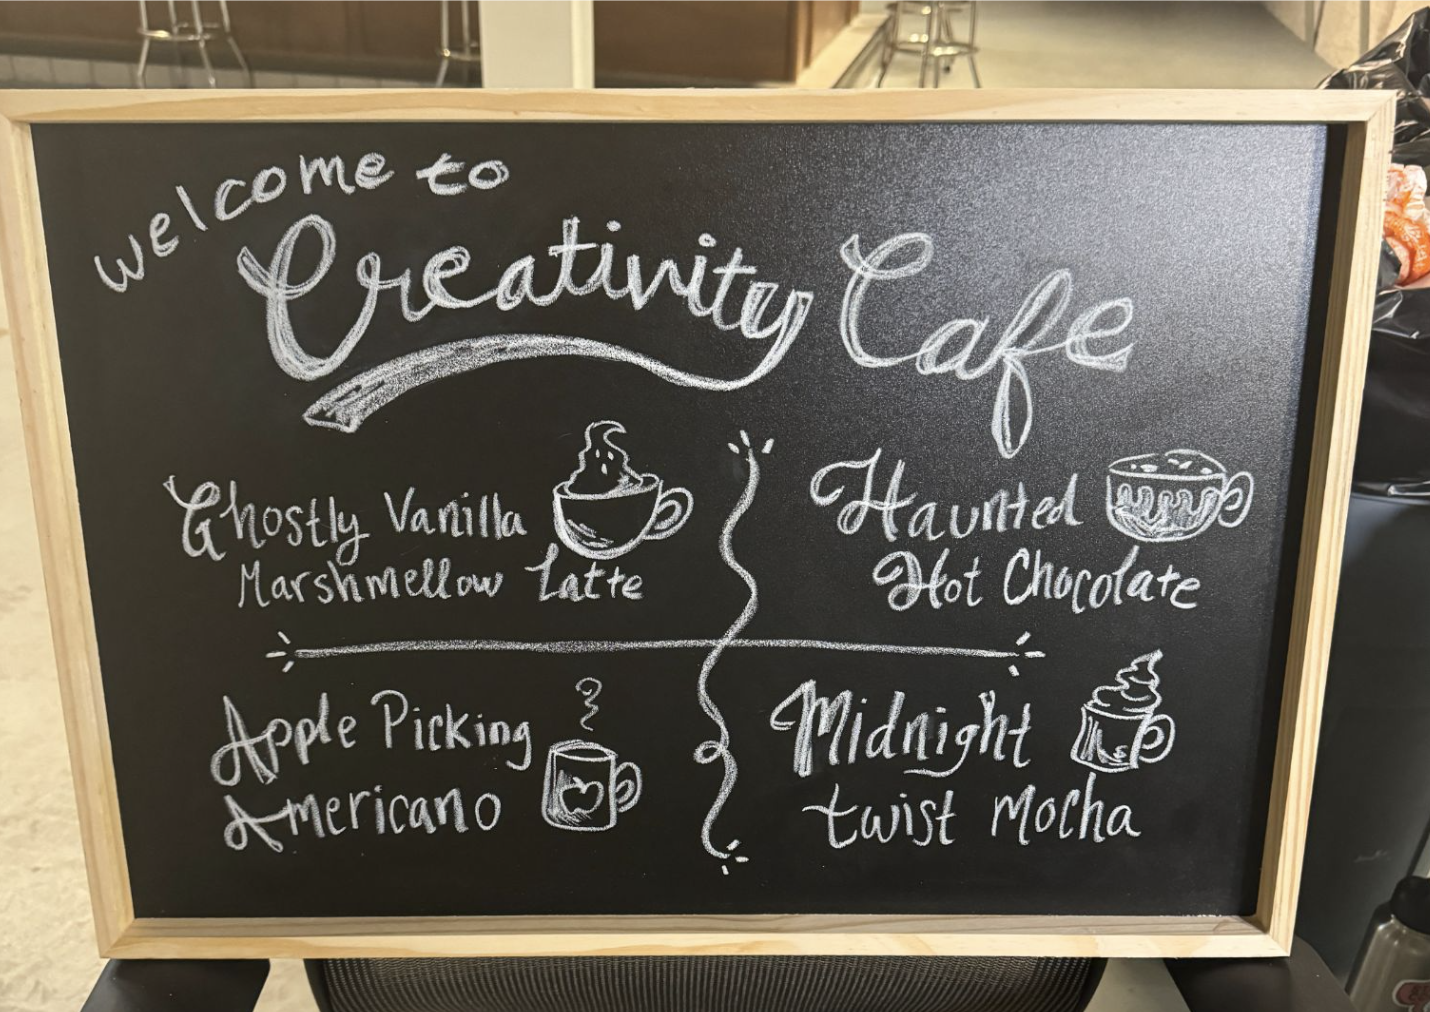 welcome to
Creativity Cafe
Ghostly Vanilla
Marshmellow Latte
Haunted
Hot Chocolate
Apple Picking
Americano
Midnight
twist Mocha